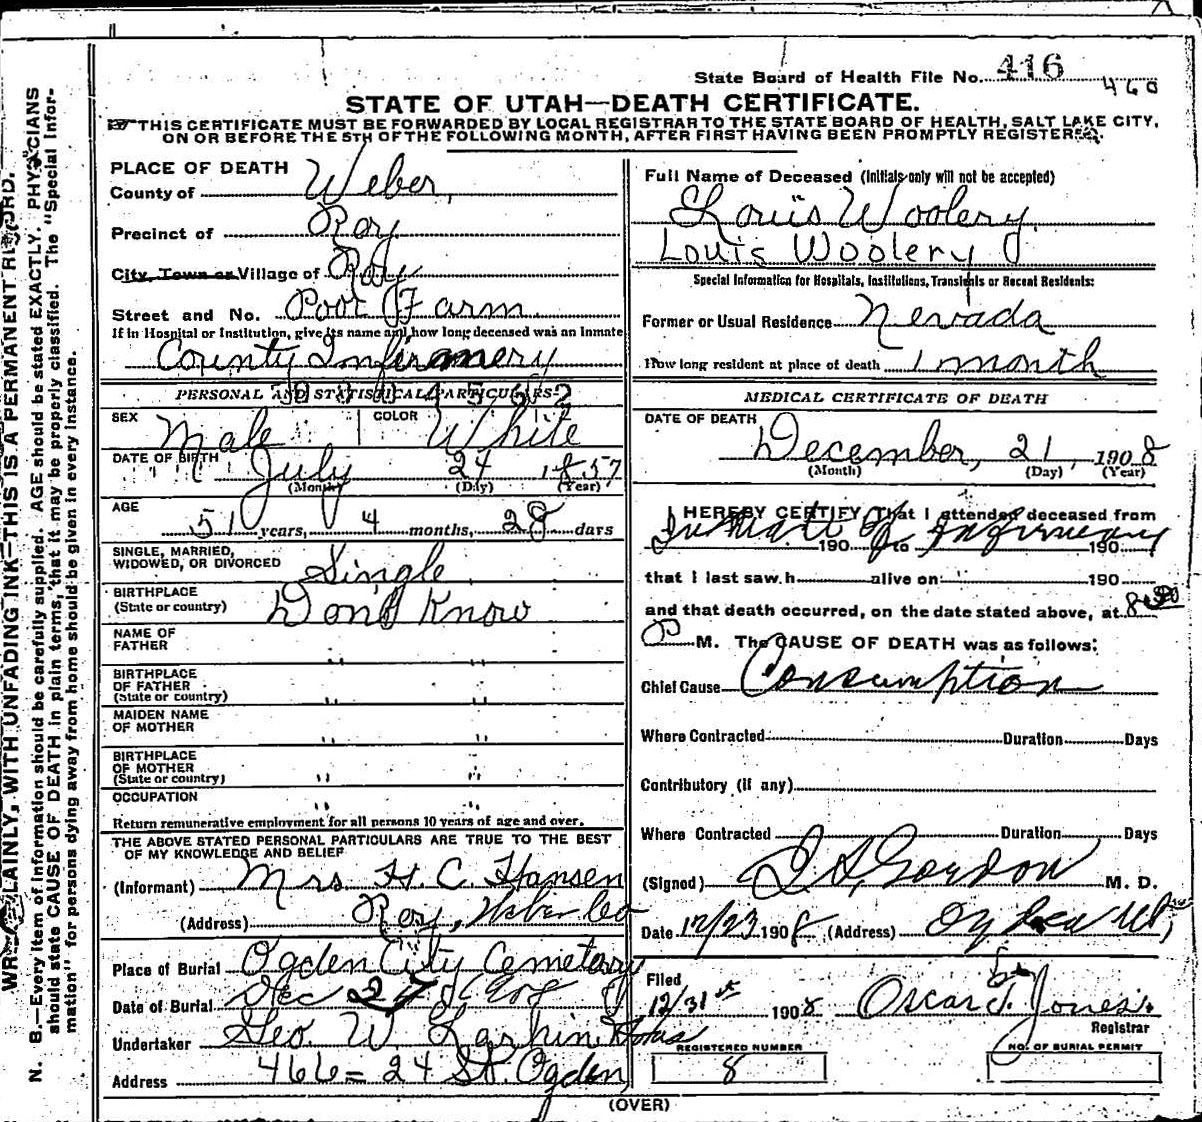 State Board of Health File No. 416
460
STATE OF UTAH—DEATH CERTIFICATE.
THIS CERTIFICATE MUST BE FORWARDED BY LOCAL REGISTRAR TO THE STATE BOARD OF HEALTH, SALT LAKE CITY,
ON OR BEFORE THE 5TH OF THE FOLLOWING MONTH, AFTER FIRST HAVING BEEN PROMPTLY REGISTERED.
WRITE PLAINLY, WITH UNFADING INK—THIS IS A PERMANENT RECORD.
N. B.—Every item of information should be carefully supplied. AGE should be stated EXACTLY. PHYSICIANS
should state CAUSE OF DEATH in plain terms, that it may be properly classified. The "Special Infor-
mation" for persons dying away from home should be given in every instance.
PLACE OF DEATH
County of Weber,
Precinct of Roy
City, Town or Village of Roy
Street and No. Poor Farm
If in Hospital or Institution, give its name and how long deceased was an inmate
County Infiramery
PERSONAL AND STATISTICAL PARTICULARS
SEX Male COLOR White
DATE OF BIRTH July 24 1857
(Month) (Day) (Year)
AGE
51 years, 4 months, 28 days
SINGLE, MARRIED,
WIDOWED, OR DIVORCED Single
BIRTHPLACE
(State or country) Don't Know
NAME OF
FATHER " "
BIRTHPLACE
OF FATHER
(State or country) " "
MAIDEN NAME
OF MOTHER " "
BIRTHPLACE
OF MOTHER
(State or country) " "
OCCUPATION " "
Return remunerative employment for all persons 10 years of age and over.
THE ABOVE STATED PERSONAL PARTICULARS ARE TRUE TO THE BEST
OF MY KNOWLEDGE AND BELIEF
(Informant) Mrs H. C. Hansen
(Address) Roy, Weber Co
Place of Burial Ogden City Cemetary
Date of Burial Dec 27 190
Undertaker Geo. W. Larkin
Address 466=24 St. Ogden
Full Name of Deceased (Initials only will not be accepted)
Louis Woolery
Louis Woolery
Special Information for Hospitals, Institutions, Transients or Recent Residents:
Former or Usual Residence Nevada
How long resident at place of death 1 month
MEDICAL CERTIFICATE OF DEATH
DATE OF DEATH
December, 21, 1908
(Month) (Day) (Year)
I HEREBY CERTIFY, That I attended deceased from
Inmate of Infirmary
190 to 190
that I last saw h alive on 190
and that death occurred, on the date stated above, at 8
P M. The CAUSE OF DEATH was as follows:
Chief Cause Consumption
Where Contracted Duration Days
Contributory (if any)
Where Contracted Duration Days
(Signed) Gordon M. D.
Date 12/23 1908 (Address) Ogden Ut,
Filed
12/31st 1908 Oscar J. Jones
Registrar
REGISTERED NUMBER
8
NO. OF BURIAL PERMIT
(OVER)